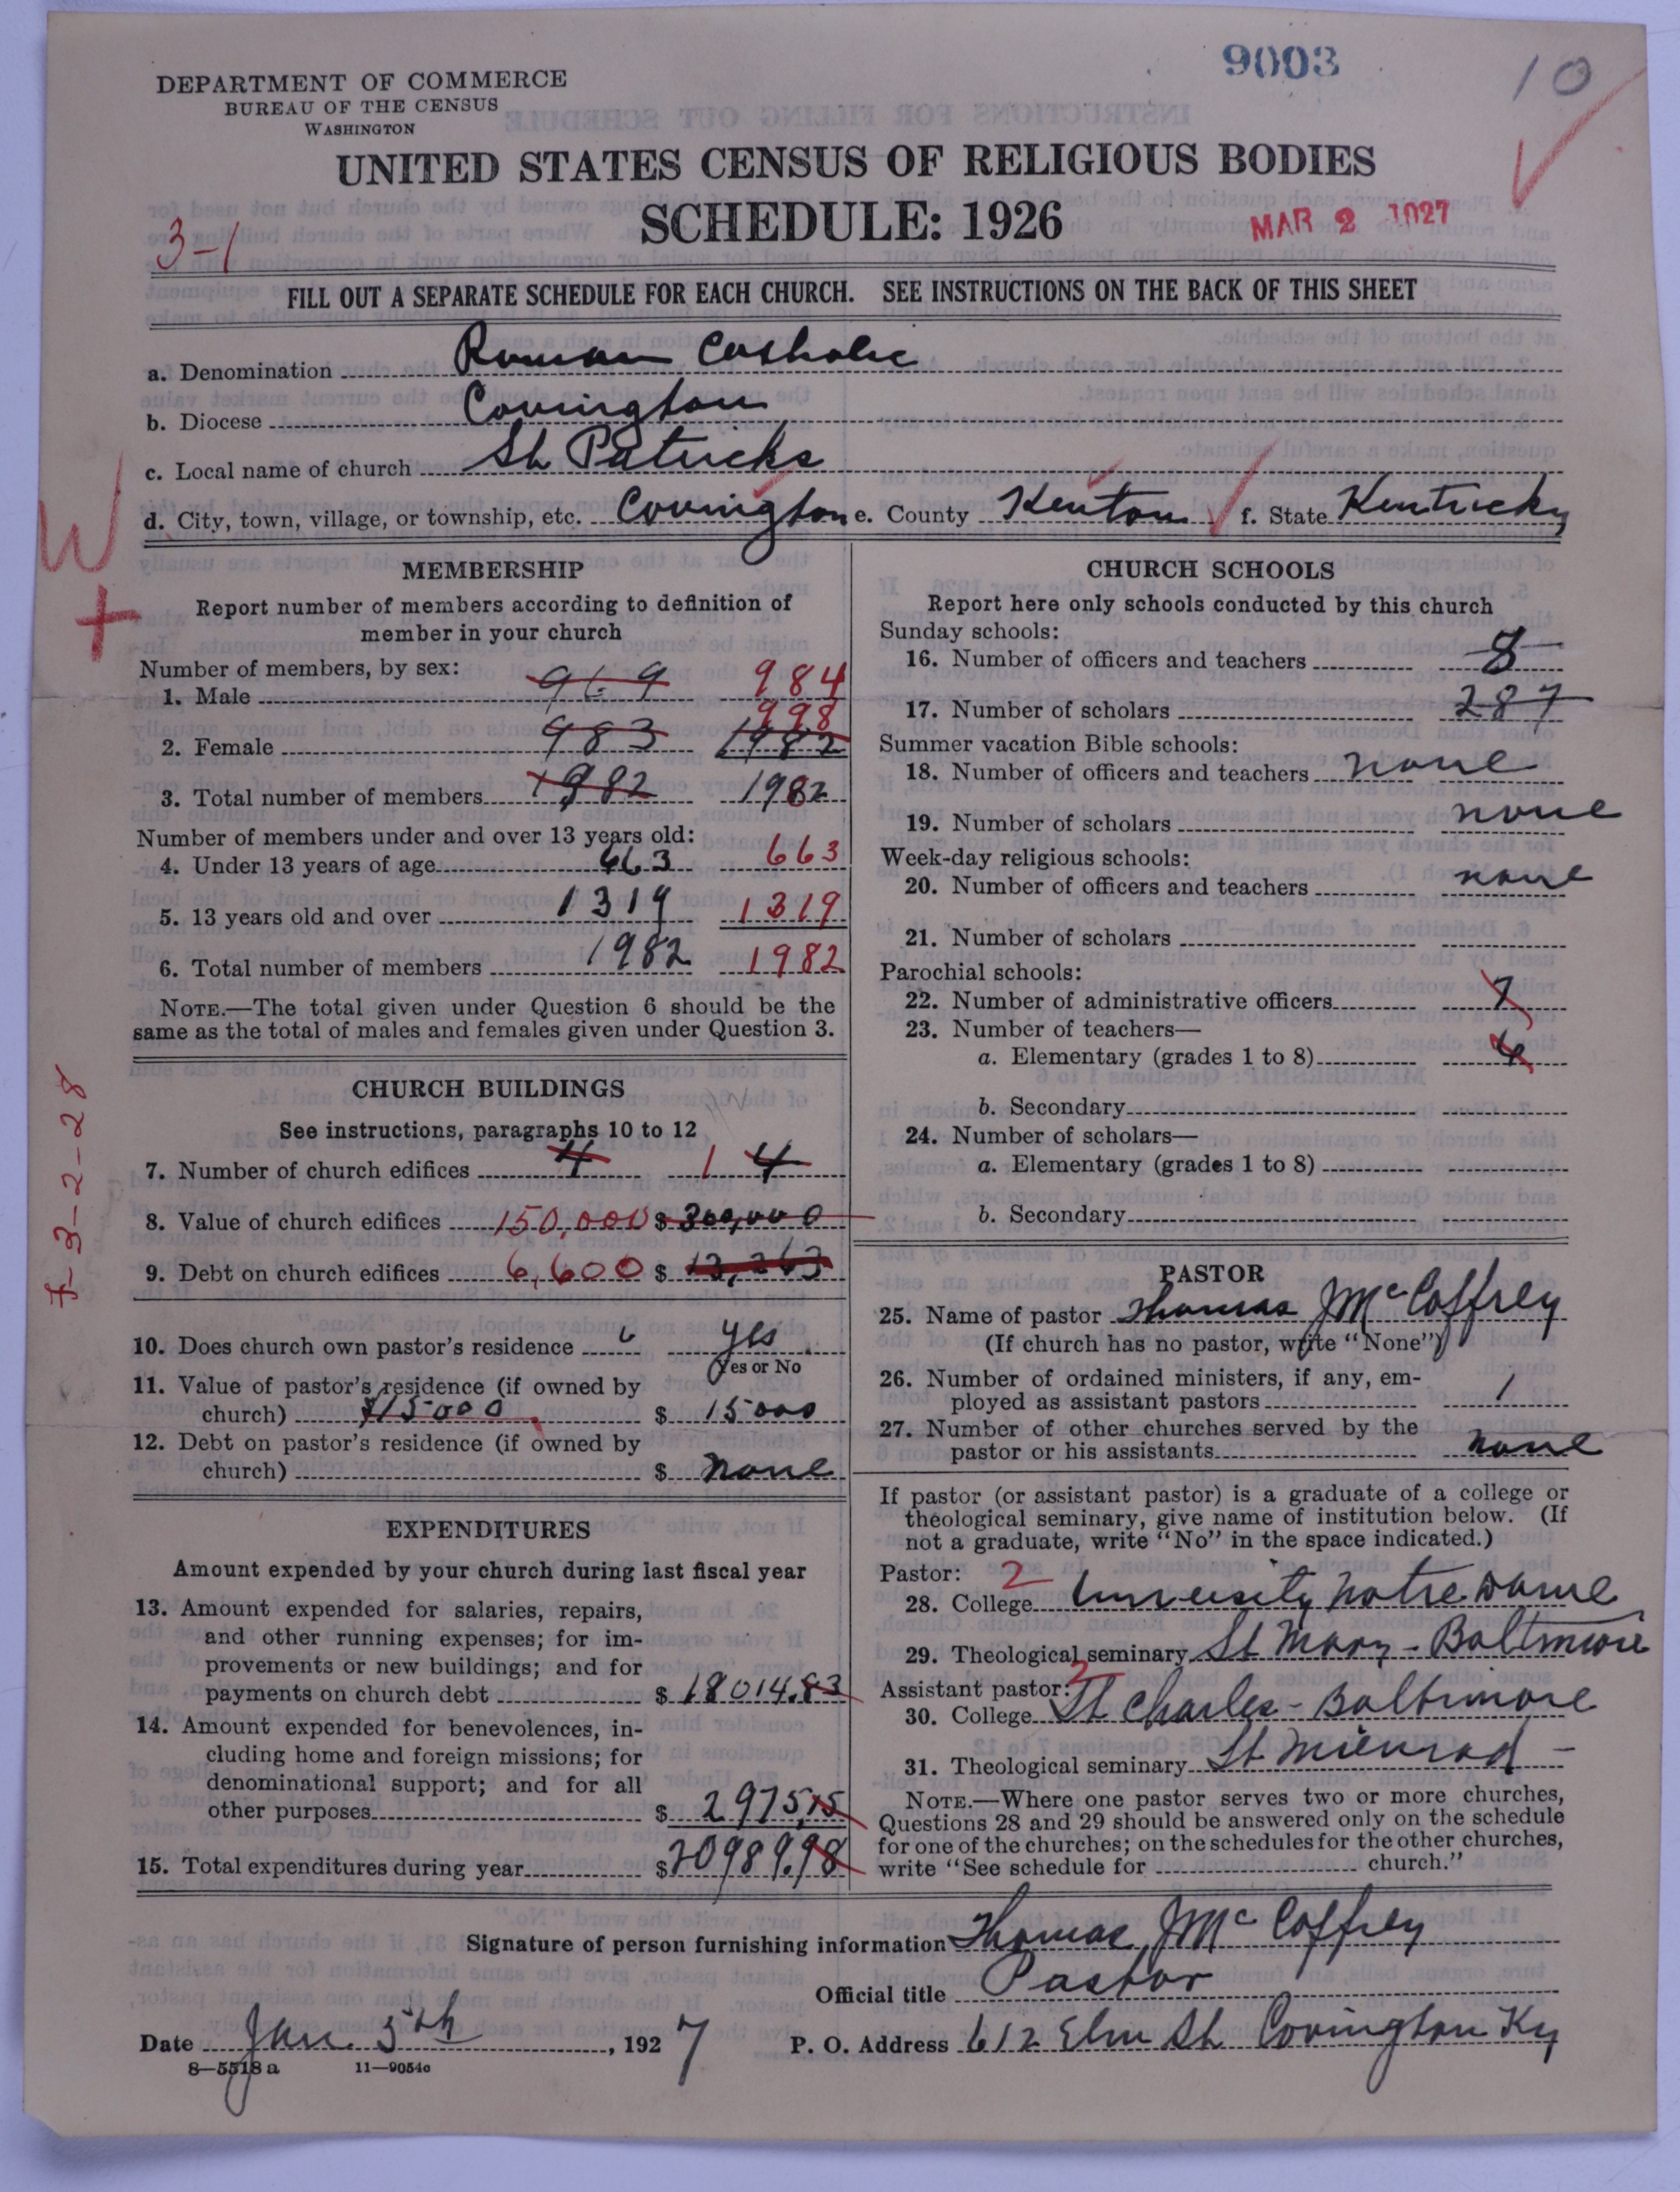 9003
10
DEPARTMENT OF COMMERCE
BUREAU OF THE CENSUS
WASHINGTON
UNITED STATES CENSUS OF RELIGIOUS BODIES
SCHEDULE: 1926
MAR 2 1927
3-1
FILL OUT A SEPARATE SCHEDULE FOR EACH CHURCH. SEE INSTRUCTIONS ON THE BACK OF THIS SHEET
a. Denomination Roman Catholic
b. Diocese Covington
c. Local name of church St Patricks
d. City, town, village, or township, etc. Covington e. County Kenton f. State Kentucky
W
+
MEMBERSHIP
Report number of members according to definition of
member in your church
Number of members, by sex:
1. Male 969 984
998
2. Female 983 1982
3. Total number of members 1982 1982
Number of members under and over 13 years old:
4. Under 13 years of age 663 663
5. 13 years old and over 1319 1319
6. Total number of members 1982 1982
NOTE.—The total given under Question 6 should be the
same as the total of males and females given under Question 3.
CHURCH BUILDINGS
See instructions, paragraphs 10 to 12
7. Number of church edifices 4 1 4
8. Value of church edifices 150,000 $ 300,000
9. Debt on church edifices 6,600 $ 13,263
10. Does church own pastor's residence yes
Yes or No
11. Value of pastor's residence (if owned by
church) $15000 $ 15000
12. Debt on pastor's residence (if owned by
church) $ none
7-3-2-28
EXPENDITURES
Amount expended by your church during last fiscal year
13. Amount expended for salaries, repairs,
and other running expenses; for im-
provements or new buildings; and for
payments on church debt $ 18014.83
14. Amount expended for benevolences, in-
cluding home and foreign missions; for
denominational support; and for all
other purposes $ 2975.15
15. Total expenditures during year $ 20989.98
CHURCH SCHOOLS
Report here only schools conducted by this church
Sunday schools:
16. Number of officers and teachers 8
17. Number of scholars 287
Summer vacation Bible schools:
18. Number of officers and teachers none
19. Number of scholars none
Week-day religious schools:
20. Number of officers and teachers none
21. Number of scholars
Parochial schools:
22. Number of administrative officers
23. Number of teachers—
a. Elementary (grades 1 to 8)
b. Secondary
24. Number of scholars—
a. Elementary (grades 1 to 8)
b. Secondary
PASTOR
25. Name of pastor Thomas J McCaffrey
(If church has no pastor, write "None")
26. Number of ordained ministers, if any, em-
ployed as assistant pastors 1
27. Number of other churches served by the
pastor or his assistants none
If pastor (or assistant pastor) is a graduate of a college or
theological seminary, give name of institution below. (If
not a graduate, write "No" in the space indicated.)
Pastor: 2
28. College University Notre Dame
29. Theological seminary St Mary - Baltimore
Assistant pastor: 2
30. College St Charles - Baltimore
31. Theological seminary St Mienrad -
NOTE.—Where one pastor serves two or more churches,
Questions 28 and 29 should be answered only on the schedule
for one of the churches; on the schedules for the other churches,
write "See schedule for church."
Signature of person furnishing information Thomas J McCaffrey
Official title Pastor
Date Jan. 5th, 1927 P. O. Address 612 Elm St Covington Ky
8—5518 a 11—9054c